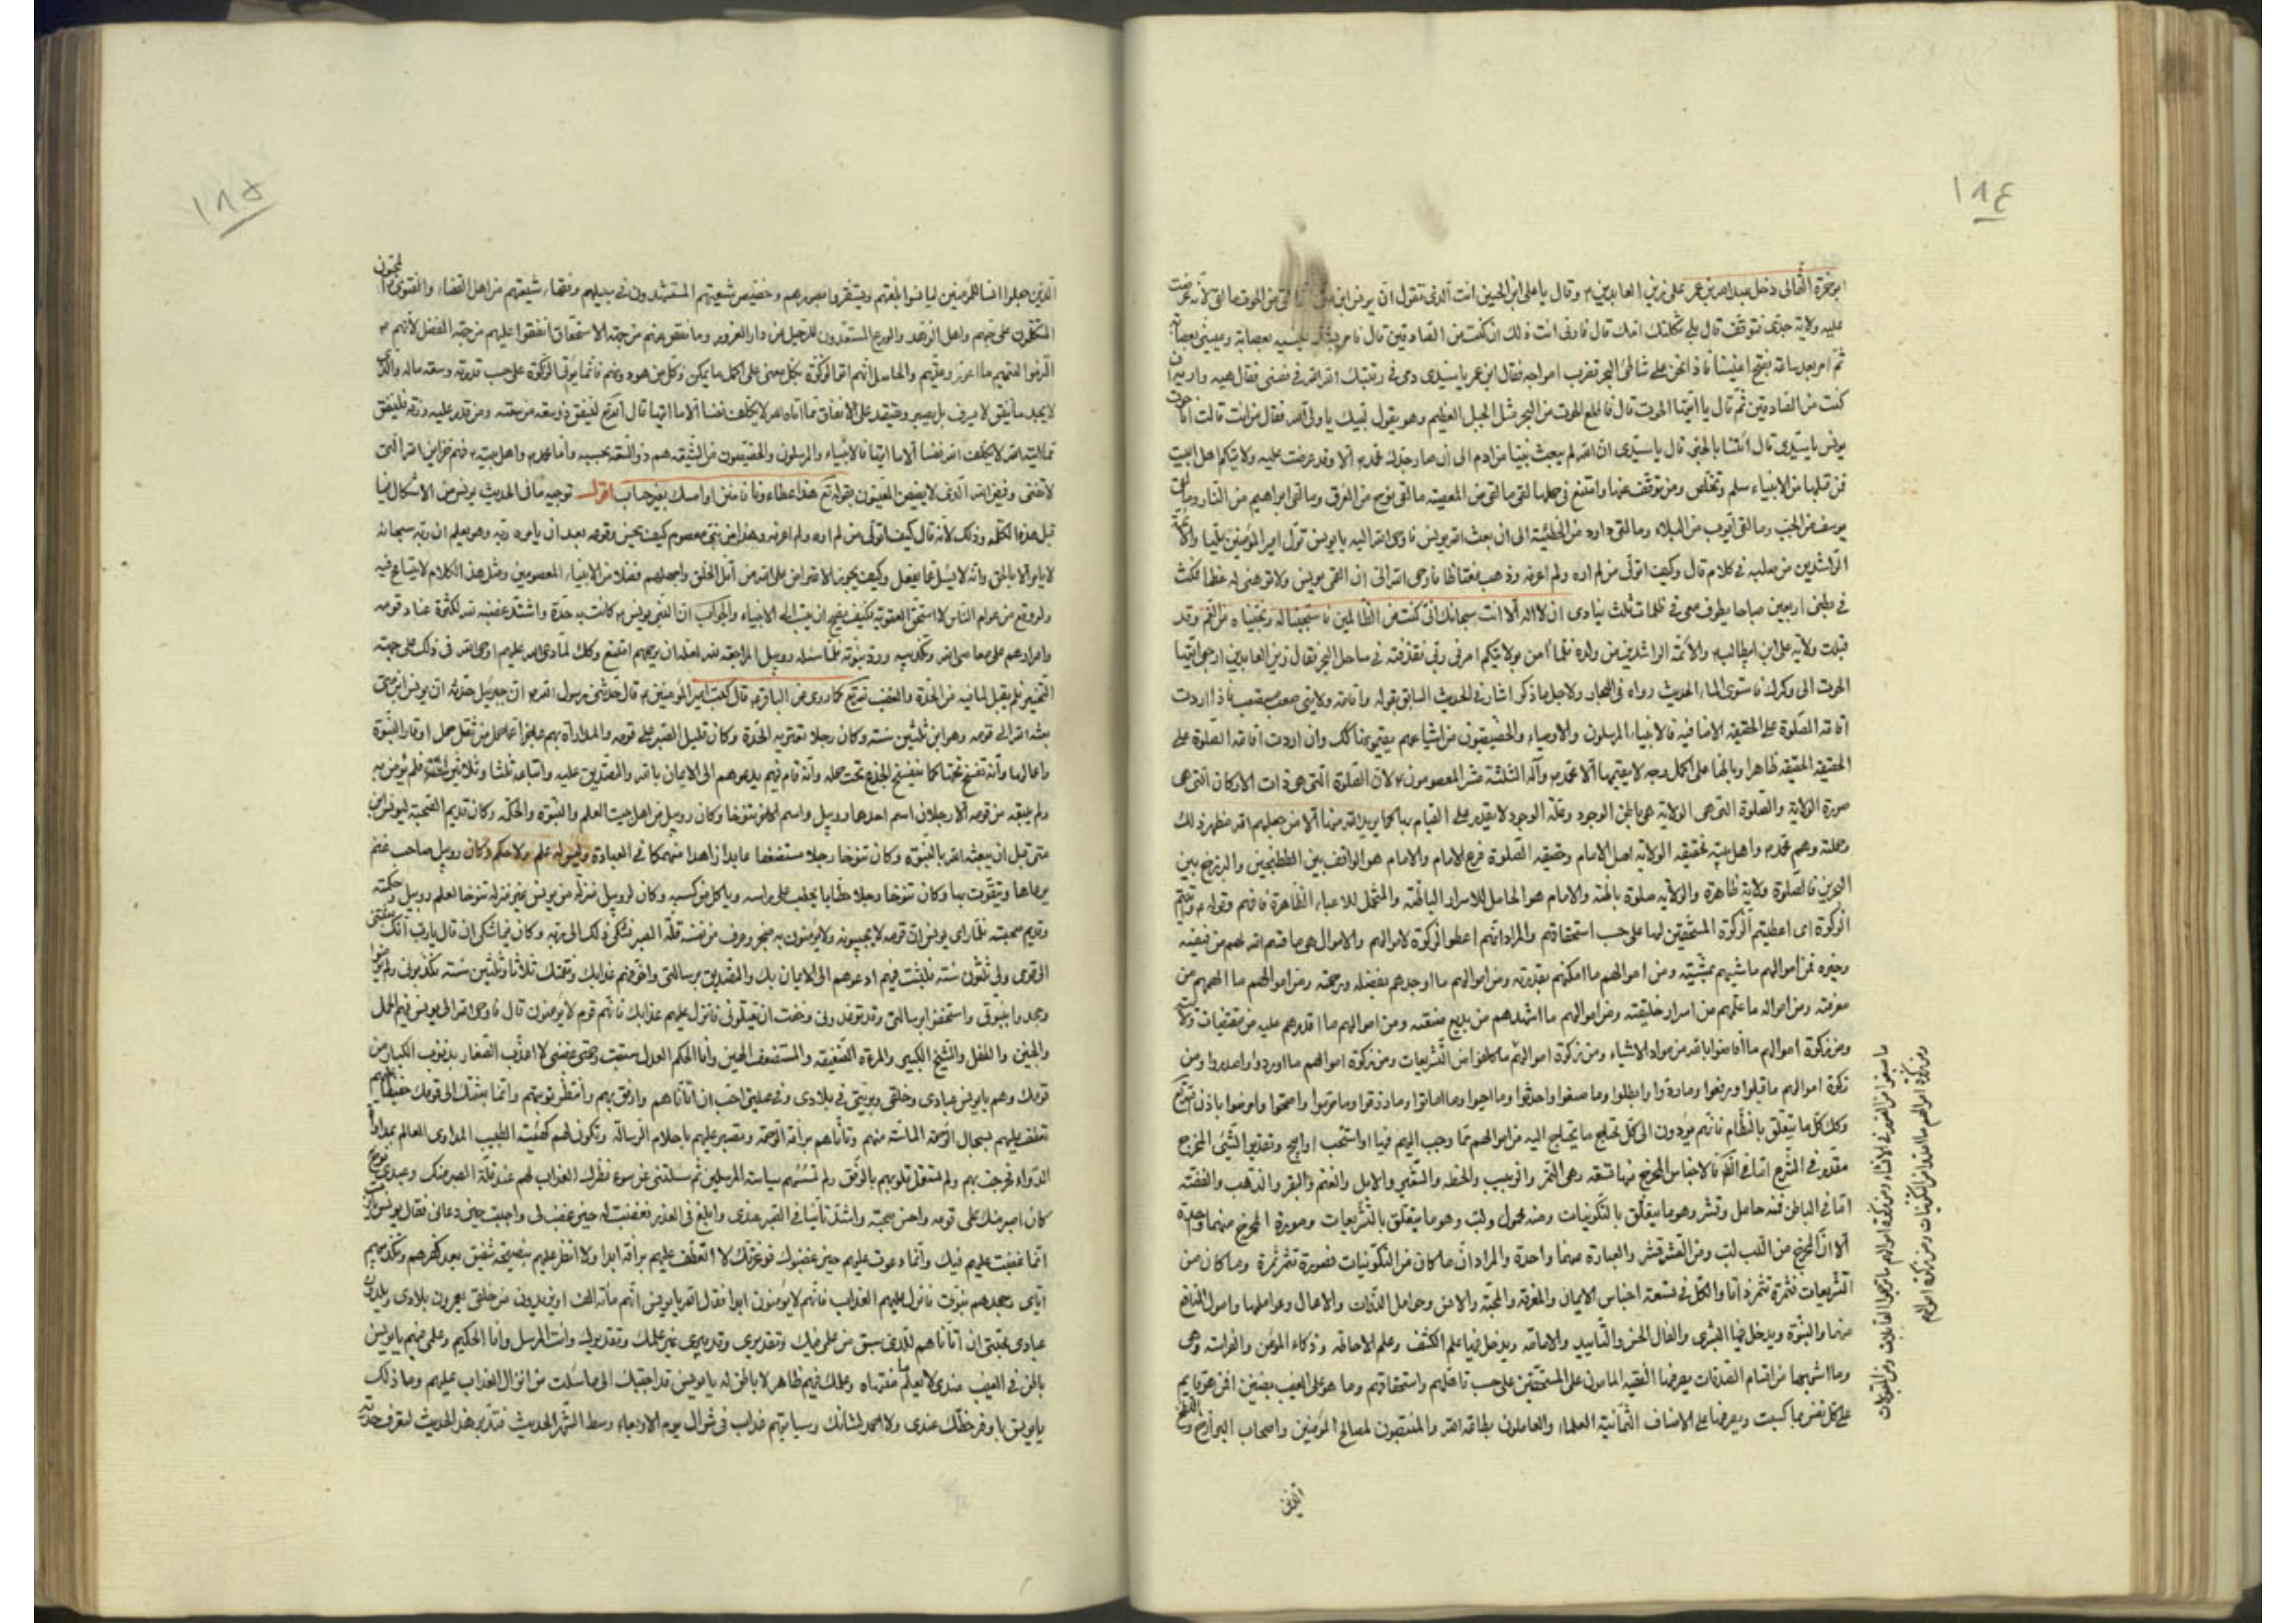 ١٨٤
ابو حمزة الثمالى دخل عبدالله بن عمر على زين العابدين ع وقال يا على ابن الحسين انت الذى تقول ان يونس ابن متى انما لقى من الحوت ما لقى لانه عرضت
عليه ولاية جدى فتوقف قال بلى ثكلتك امك قال فارنى انت ذلك ان كنت من الصادقين قال فامر بشد عينيه بعصابة وعينى بعصابة
ثم امر بعد ساعة بفتح اعيننا فاذا نحن على شاطئ البحر تضرب امواجه فقال ابن عمر يا سيدى دمى فى رقبتك الله الله فى نفسى فقال هيه وارنيه ان
كنت من الصادقين ثم قال يا ايتها الحوت قال فاطلع الحوت من البحر مثل الجبل العظيم وهو يقول لبيك يا ولى الله فقال من انت قالت انا حوت
يونس يا سيدى قال انبئنا بالخبر قال يا سيدى ان الله لم يبعث نبيا من ادم الى ان صار جدك محمد الا وقد عرضت عليه ولايتكم اهل البيت
فمن قبلها من الانبياء سلم وتخلص ومن توقف عنها وامتنع فى حملها لقى ما لقى من المعصية وما لقى نوح من الغرق وما لقى ابراهيم من النار وما لقى
يوسف من الجب وما لقى ايوب من البلاء وما لقى داود من الخطيئة الى ان بعث الله يونس فاوحى الله اليه يا يونس تول امير المؤمنين عليا والائمة
الراشدين من صلبه فى كلام قال وكيف اتولى من لم اره ولم اعرفه وذهب مغتاظا فاوحى الله الى ان القمى يونس ولا توهنى له عظما فمكث
فى بطنى اربعين صباحا يطوف معى فى ظلمات ثلث ينادى ان لا اله الا انت سبحانك انى كنت من الظالمين فاستجبنا له ونجيناه من الغم وقد
قبلت ولاية على ابن ابيطالب والائمة الراشدين من ولده فلما امن بولايتكم امرنى ربى فقذفته فى ساحل البحر فقال زين العابدين ارجع ايتها
الحوت الى وكرك فاستوى الماء الحديث رواه فى البحار ولاجل ما ذكر اشار فى الحديث السابق بقوله واقامة ولايتى صعب مستصعب فاذا اردت
اقامة الصلوة على الحقيقة الاضافية فالانبياء المرسلون والاوصياء والخصيصون من اشياعهم يقيمونها كك وان اردت اقامة الصلوة على
الحقيقة الحقيقة ظاهرا وباطنا على اكمل وجه لا يقيمها الا محمد وآله الثلثة عشر المعصومون لان الصلوة التى هى ذات الاركان التى هى
صورة الولاية والصلوة التى هى الولاية هى باطن الوجود وعلة الوجود لا يقدر على القيام بها كما يريد الله منها الا من جعلهم الله مظهر ذلك
ومحله وهم محمد واهل بيته فحقيقة الولاية اصل الامام وحقيقة الصلوة فرع الامام والامام هو الواقف بين الطتنجين والبرزخ بين
البحرين فالصلوة ولاية ظاهرة والولاية صلوة باطنة والامام هو الحامل للاسرار الباطنة والمتحمل للاعباء الظاهرة فافهم وقوله واتيتم
الزكوة اى اعطيتم الزكوة المستحقين لها على حسب استحقاقهم والمراد انهم اعطوا الزكوة لاموالهم والاموال هى ما قسم الله لهم من فيضه
وخيره فمن اموالهم ما شيئهم بمشيته ومن اموالهم ما امكنهم بقدرته ومن اموالهم ما اوجدهم بفضله ورحمته ومن اموالهم ما الهمهم من
معرفته ومن امواله ما علمهم من اسرار خليقته ومن اموالهم ما اشهدهم من بديع صنعته ومن اموالهم ما اقدرهم عليه من مقتضيات ولايته
ومن زكوة اموالهم ما افاضوا بالله من مواد الاشياء ومن زكوة اموالهم ما كلفوا من التشريعات ومن زكوة اموالهم ما اوردوا واصدروا ومن
زكوة اموالهم ما قبلوا ورفعوا وما ردوا وابطلوا وما صنعوا واحدثوا وما احيوا وما اماتوا وما رزقوا وما حرموا واصحوا وامرضوا باذن الله
وكك كل ما يتعلق بالنظام فانهم يؤدون الى كل محتاج ما يحتاج اليه من اموالهم مما وجب اليهم فيها او استحب او ابيح وتقديرا الشئ المخرج
مقدر فى الشرع اما فى الظ فالاجناس المخرج منها تسعة وهى التمر والزبيب والحنطة والشعير والابل والغنم والبقر والذهب والفضة
اما فى الباطن فمنه حامل وقشر وهو ما يتعلق بالتكوينيات ومنه محمول ولب وهو ما يتعلق بالتشريعات وصورة المخرج منهما واحدة
الا ان المخرج من اللب لب ومن القشر قشر والعبارة منهما واحدة والمراد ان ما كان من التكوينيات فصورة تثمر ثمرة وما كان من
التشريعات فثمرة تثمر ذاتا والكل فى تسعة اجناس الايمان والمعرفة والمحبة والانس وحوامل الذوات والاعمال وعواملها واصول المنافع
منها والنبوة ويدخل فيها البشرى والفال الحسن والتاييد والامامة ويدخل فيها علم الكشف وعلم الاحاطة وذكاء المؤمن والفراسة وهى
وما اشبهها من اقسام الصدقات يعرضها الفقيه المامون على المستحقين على حسب تاهلهم واستحقاقهم وما هو على الغيب بضنين افمن هو قايم
على كل نفس بما كسبت ويعرضها على الاصناف الثمانية العلماء والعاملون بطاعة الله والمنتصبون لمصالح المؤمنين واصحاب البرازخ
الذين
١٨٥
الذين جعلوا انسا للمؤمنين ليانسوا بلغتهم ويستقروا بصورهم وخصيص شيعتهم المستشهدون فى سبيلهم وفقهاء شيعتهم من اهل القضاء والفتوى
المتكلون على حبهم واهل الزهد والورع المستعدون للرحيل من دار الغرور وما نقص عنهم من جهة الاستحقاق انفقوا عليهم من جهة الفضل لانهم
والحاصل انهم اتوا الزكوة بكل معنى على اكمل ما يمكن وكل من هو دونهم فانما يؤتى الزكوة على حسب قدرته وسعة ماله والذى
لا يجد ما ينفق لا يسرف بل يصبر ويقتصد على الانفاق مما اتاه الله لا يكلف نفسا الا ما اتيها قال تع لينفق ذو سعة من سعته ومن قدر عليه رزقه فلينفق
مما اتيه الله لا يكلف الله نفسا الا ما اتيها فالانبياء والمرسلون والخصيصون من الشيعة هم ذو السعة بحسبه واما محمد واهل بيته فهم خزاين الله التى
لا تفنى وفيض الله الذى لا يغيض المعنيون بقوله تع هذا عطاءنا فامنن او امسك بغير حساب اقول توجيه ما فى الحديث يونس من الاشكال فيما
قبل هذه الكلمة وذلك لانه قال كيف اتولى من لم اره ولم اعرفه وهذا من نبى معصوم كيف يحسن وقوعه بعد ان يامره ربه وهو يعلم ان ربه سبحانه
لا يامر الا بالحق وانه لا يسئل عما يفعل وكيف يجوز الاعتراض على الله من اقل الخلق واجهلهم فضلا من الانبياء المعصومين ومثل هذا الكلام لا يتسامح فيه
ولو وقع من عوام الناس لاستحق العقوبة فكيف يصح ان ينسب الى الانبياء والجواب ان النبى يونس كانت به حدة واشتد غضبه لله لكثرة عناد قومه
واصرارهم على معاصى الله وتكذيبه ورد نبوته فلما سئله روبيل المراجعة لله لعله ان يرحمهم امتنع وكك لما دعى الله عليهم اوحى الله فى ذلك على جهة
التخيير فلم يقبل لما فيه من الحدة والغضب لله تع كما روى عن الباقر قال كتب امير المؤمنين قال حدثنى رسول الله ان جبرئيل حدثه ان يونس ابن متى
بعثه الله الى قومه وهو ابن ثلثين سنة وكان رجلا تعتريه الحدة وكان قليل الصبر على قومه والمداراة بهم عاجزا عما حمل من ثقل حمل اوقار النبوة
واعلامها وانه تفسخ تحتها كما يتفسخ الجذع تحت حمله وانه قام فيهم يدعوهم الى الايمان بالله والتصديق به واتباعه ثلثا وثلاثين سنة فلم يؤمن به
ولم يتبعه من قومه الا رجلان اسم احدهما روبيل واسم الاخر تنوخا وكان روبيل من اهل بيت العلم والنبوة والحكمة وكان قديم الصحبة ليونس ابن
متى قبل ان يبعثه الله بالنبوة وكان تنوخا رجلا مستضعفا عابدا زاهدا منهمكا فى العبادة وليس له علم ولا حكم وكان روبيل صاحب غنم
يرعاها ويتقوت بها وكان تنوخا رجلا حطابا يحتطب على راسه وياكل من كسبه وكان لروبيل منزلة من يونس غير منزلة تنوخا لعلم روبيل وحكمته
وقديم صحبته فلما راى يونس ان قومه لا يجيبونه ولا يؤمنون به ضجر وعرف من نفسه قلة الصبر فشكى ذلك الى ربه وكان فيما شكى ان قال يا رب انك بعثتنى
الى قومى ولى ثلثون سنة فلبثت فيهم ادعوهم الى الايمان بك والتصديق برسالتى واخوفهم عذابك ونقمتك ثلاثا وثلثين سنة فكذبونى ولم يؤمنوا بى
وجحدوا نبوتى واستخفوا برسالتى وقد توعدونى وخفت ان يقتلونى فانزل عليهم عذابك فانهم قوم لا يؤمنون قال فاوحى الله الى يونس فيهم الحمل
والجنين والطفل والشيخ الكبير والمرءة الضعيفة والمستضعف المهين وانا الحكم العدل سبقت رحمتى غضبى لا اعذب الصغار بذنوب الكبار من
قومك وهم يا يونس عبادى وخلقى وبريتى فى بلادى وفى عيلتى احب ان اتاناهم وارفق بهم وانتظر توبتهم وانما بعثتك الى قومك حفيظا عليهم
تعطف عليهم بسجال الرحمة الماسة منهم وتاناهم برافة النبوة وتصبر عليهم باحلام الرسالة وتكون لهم كهيئة الطبيب المداوى العالم بمداواة
الدواء فخرجت بهم ولم تستعمل قلوبهم بالرفق ولم تسسهم بسياسة المرسلين ثم سئلتنى عن سوء نظرك العذاب لهم عند قلة الصبر منك وعبدى نوح
كان اصبر منك على قومه واحسن صحبة واشد تانيا فى الصبر عندى وابلغ فى العذر فغضبت له حين غضب لى واجبته حين دعانى فقال يونس يا رب
انما غضبت عليهم فيك وانما دعوت عليهم حين عصوك فوعزتك لا اتعطف عليهم برافة ابدا ولا انظر اليهم بنصيحة شفيق بعد كفرهم وتكذيبهم
اياى وجحدهم نبوتى فانزل عليهم العذاب فانهم لا يؤمنون ابدا فقال الله يا يونس انهم مائة الف او يزيدون من خلقى يعمرون بلادى ويلدون
عبادى ومحبتى ان اتاناهم للذى سبق من علمى فيهم وفيك وتقديرى وتدبيرى غير علمك وتقديرك وانت المرسل وانا الحكيم وعلمى فيهم يا يونس
باطن فى الغيب عندى لا يعلم ما منتهاه وعلمك فيهم ظاهر لا باطن له يا يونس قد اجبتك الى ما سئلت من انزال العذاب عليهم وما ذلك
يا يونس باوفر لحظك عندى ولا احمد لشانك وسياتيهم عذاب فى شوال يوم الاربعاء وسط الشهر الحديث فتدبر هذا الحديث لتعرف حدته